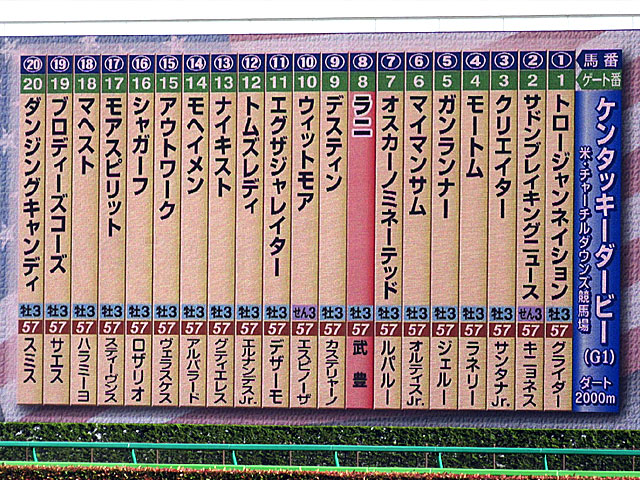 馬番
ゲート番
ケンタッキーダービー(G1)
米・チャーチルダウンズ競馬場
ダート
2000m
① 1 トロージャンネイション 牡3 57 グライダー
② 2 サドンブレイキングニュース せん3 57 キニョネス
③ 3 クリエイター 牡3 57 サンタナJr.
④ 4 モートム 牡3 57 ラネリー
⑤ 5 ガンランナー 牡3 57 ジェルー
⑥ 6 マイマンサム 牡3 57 オルティスJr.
⑦ 7 オスカーノミネーテッド 牡3 57 ルパルー
⑧ 8 ラニ 牡3 57 武豊
⑨ 9 デスティン 牡3 57 カステリャーノ
⑩ 10 ウィットモア せん3 57 エスピノーザ
⑪ 11 エグザジャレイター 牡3 57 デザーモ
⑫ 12 トムズレディ 牡3 57 エルナンデスJr.
⑬ 13 ナイキスト 牡3 57 グティエレス
⑭ 14 モヘイメン 牡3 57 アルバラード
⑮ 15 アウトワーク 牡3 57 ヴェラスケス
⑯ 16 シャガーフ 牡3 57 ロザリオ
⑰ 17 モアスピリット 牡3 57 スティーヴンス
⑱ 18 マヘスト 牡3 57 ハラミーヨ
⑲ 19 ブロディーズコーズ 牡3 57 サエス
⑳ 20 ダンジングキャンディ 牡3 57 スミス